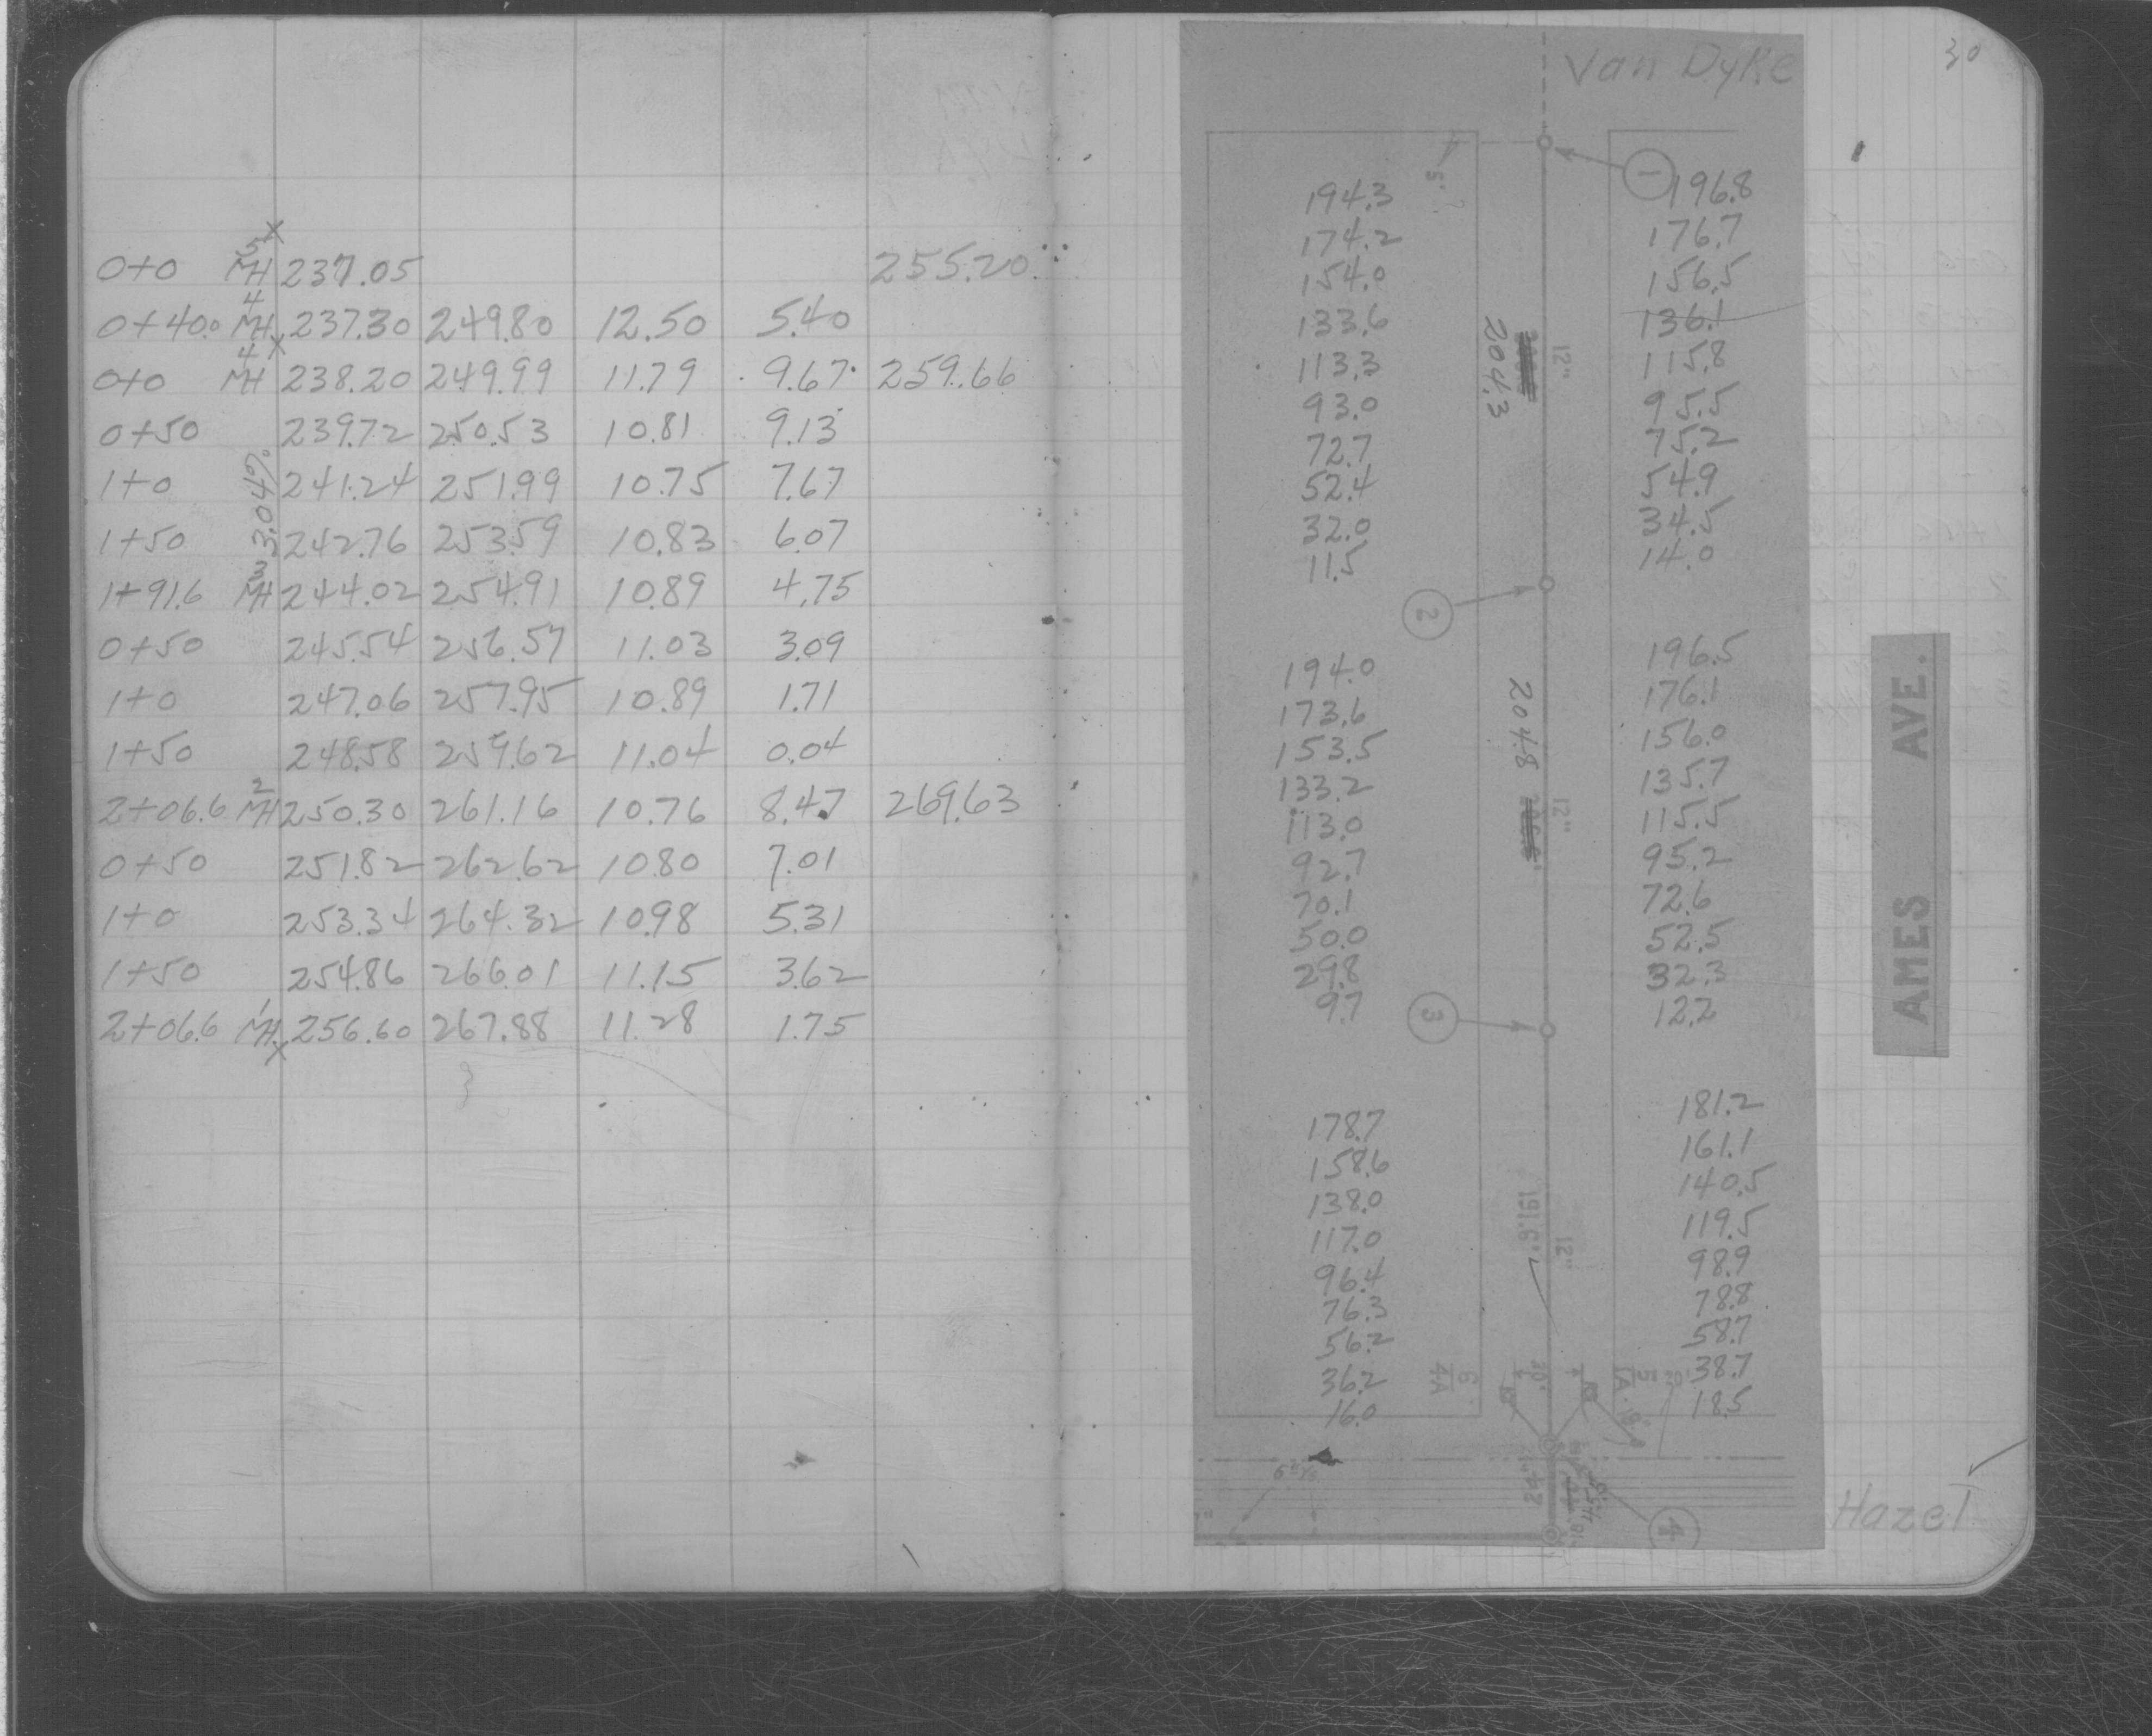 0+0 MH 5 237.05 255.20
0+40.0 MH 4 237.30 249.80 12.50 5.40
0+0 MH 4 238.20 249.99 11.79 9.67 259.66
0+50 239.72 250.53 10.81 9.13
1+0 241.24 251.99 10.75 7.67
3.04%
1+50 242.76 253.59 10.83 6.07
1+91.6 MH 3 244.02 254.91 10.89 4.75
0+50 245.54 256.57 11.03 3.09
1+0 247.06 257.95 10.89 1.71
1+50 248.58 259.62 11.04 0.04
2+06.6 MH 2 250.30 261.16 10.76 8.47 269.63
0+50 251.82 262.62 10.80 7.01
1+0 253.34 264.32 10.98 5.31
1+50 254.86 266.01 11.15 3.62
2+06.6 MH 1 256.60 267.88 11.28 1.75
30
Van Dyke
1
194.3 196.8
174.2 176.7
154.0 156.5
133.6 136.1
113.3 115.8
93.0 95.5
72.7 75.2
52.4 54.9
32.0 34.5
11.5 14.0
204.3
12"
2
194.0 196.5
173.6 176.1
153.5 156.0
133.2 135.7
113.0 115.5
92.7 95.2
70.1 72.6
50.0 52.5
29.8 32.3
9.7 12.2
204.8
12"
3
178.7 181.2
158.6 161.1
138.0 140.5
117.0 119.5
96.4 98.9
76.3 78.8
56.2 58.7
36.2 38.7
16.0 18.5
191.6'
12"
6
4A
24"
4
AMES AVE.
Hazel